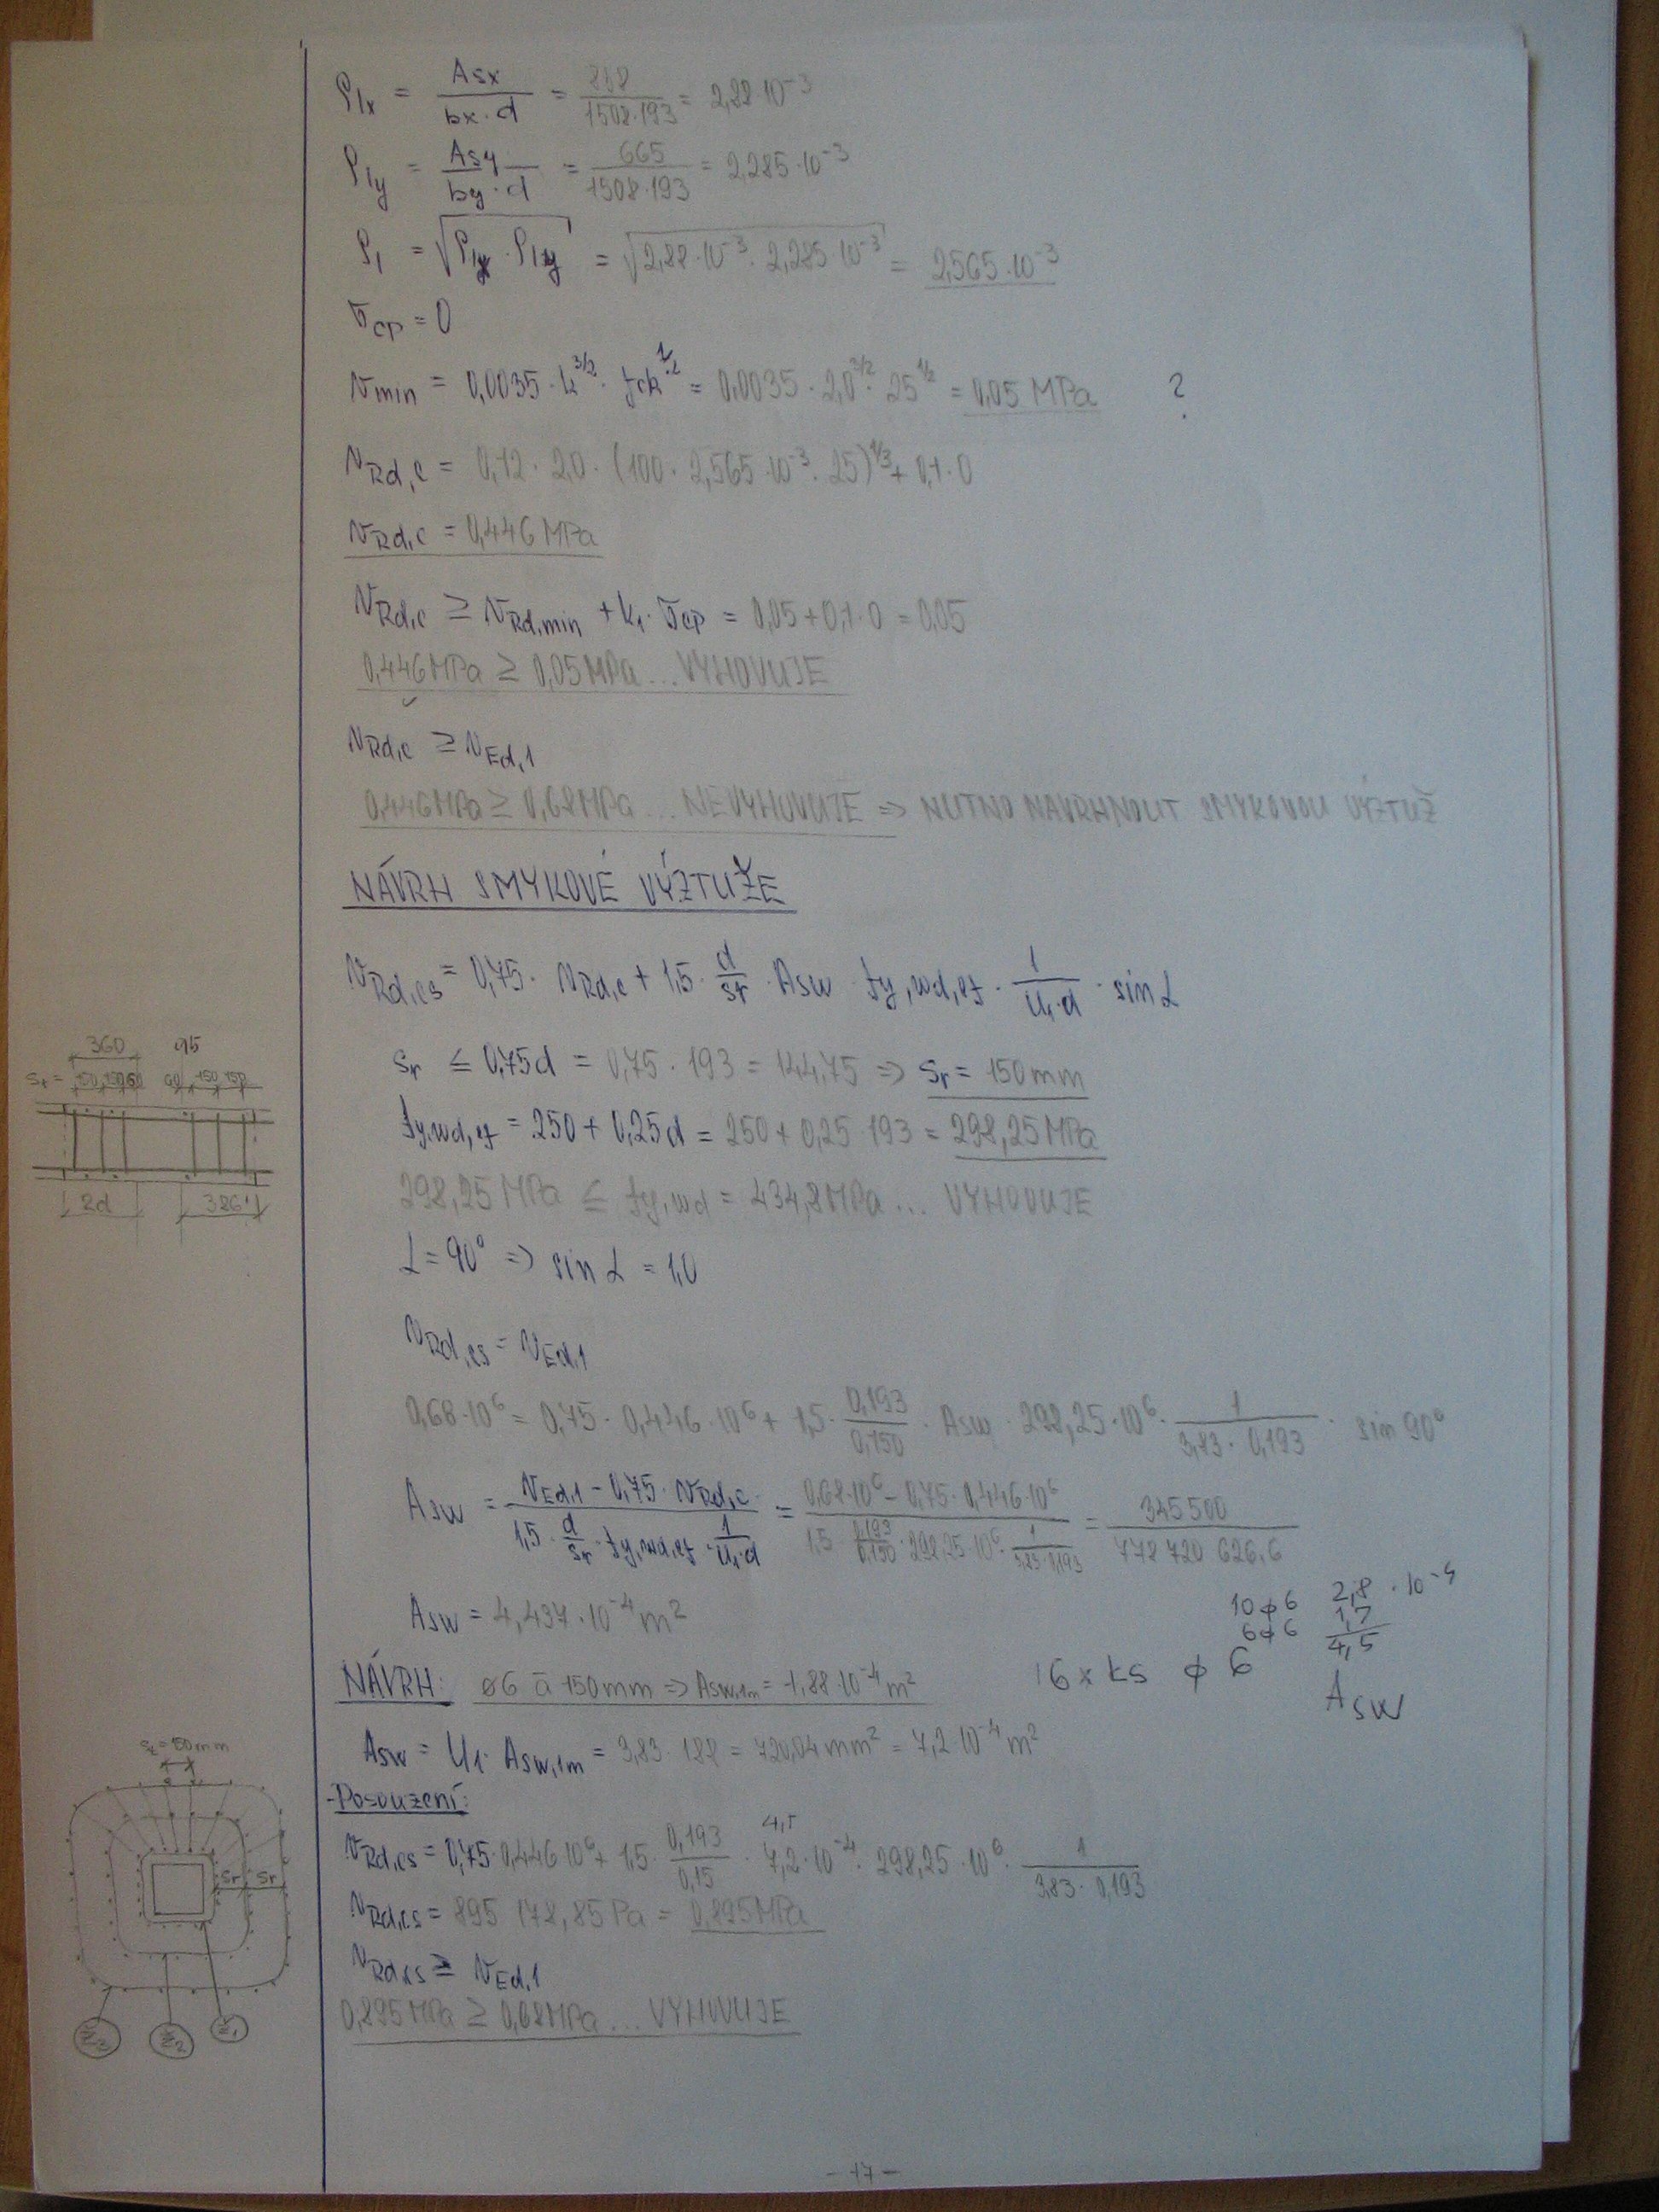 ρlx = Asx / bx·d = 838 / 1508·193 = 2,88·10⁻³
ρly = Asy / by·d = 665 / 1508·193 = 2,285·10⁻³
ρl = √ρly·ρly = √2,88·10⁻³·2,285·10⁻³ = 2,565·10⁻³
σcp = 0
vmin = 0,0035·k^3/2·fck^1/2 = 0,0035·2,0^3/2·25^1/2 = 0,05 MPa ?
vRd,c = 0,12·2,0·(100·2,565·10⁻³·25)^1/3 + 0,1·0
vRd,c = 0,446 MPa
vRd,c ≥ vRd,min + k1·σcp = 0,05 + 0,1·0 = 0,05
0,446 MPa ≥ 0,05 MPa ... VYHOVUJE
vRd,c ≥ vEd,1
0,446 MPa ≥ 0,68 MPa ... NEVYHOVUJE => NUTNO NAVRHNOUT SMYKOVOU VÝZTUŽ
NÁVRH SMYKOVÉ VÝZTUŽE
vRd,cs = 0,75·vRd,c + 1,5·d/sr·Asw·fy,wd,ef·1/u1·d·sin α
sr ≤ 0,75d = 0,75·193 = 144,75 => sr = 150mm
fy,wd,ef = 250 + 0,25d = 250 + 0,25·193 = 298,25 MPa
298,25 MPa ≤ fy,wd = 434,8 MPa ... VYHOVUJE
α = 90° => sin α = 1,0
vRd,cs = vEd,1
0,68·10⁶ = 0,75·0,446·10⁶ + 1,5·0,193/0,150·Asw·298,25·10⁶·1/3,83·0,193·sin 90°
Asw = vEd,1 − 0,75·vRd,c / 1,5·d/sr·fy,wd,ef·1/u1·d = 0,68·10⁶ − 0,75·0,446·10⁶ / 1,5·0,193/0,150·298,25·10⁶·1/3,83·0,193 = 345500 / 778 720 626,6
Asw = 4,437·10⁻⁴ m²
10ø6 2,8·10⁻⁴
6ø6 1,7
4,5
16 × ks ø 6
Asw
NÁVRH: ø6 á 150mm => Asw,1m = 1,88·10⁻⁴ m²
Asw = u1·Asw,1m = 3,83·188 = 720,04 mm² = 7,2·10⁻⁴ m²
-Posouzení:
4,5
vRd,cs = 0,75·0,446·10⁶ + 1,5·0,193/0,15·7,2·10⁻⁴·298,25·10⁶·1/3,83·0,193
vRd,cs = 895 178,85 Pa = 0,895 MPa
vRd,cs ≥ vEd,1
0,895 MPa ≥ 0,68 MPa ... VYHOVUJE
360 95
sr =
90 150 150
2d 386
sr sr
Z3 Z2 Z1
-17-